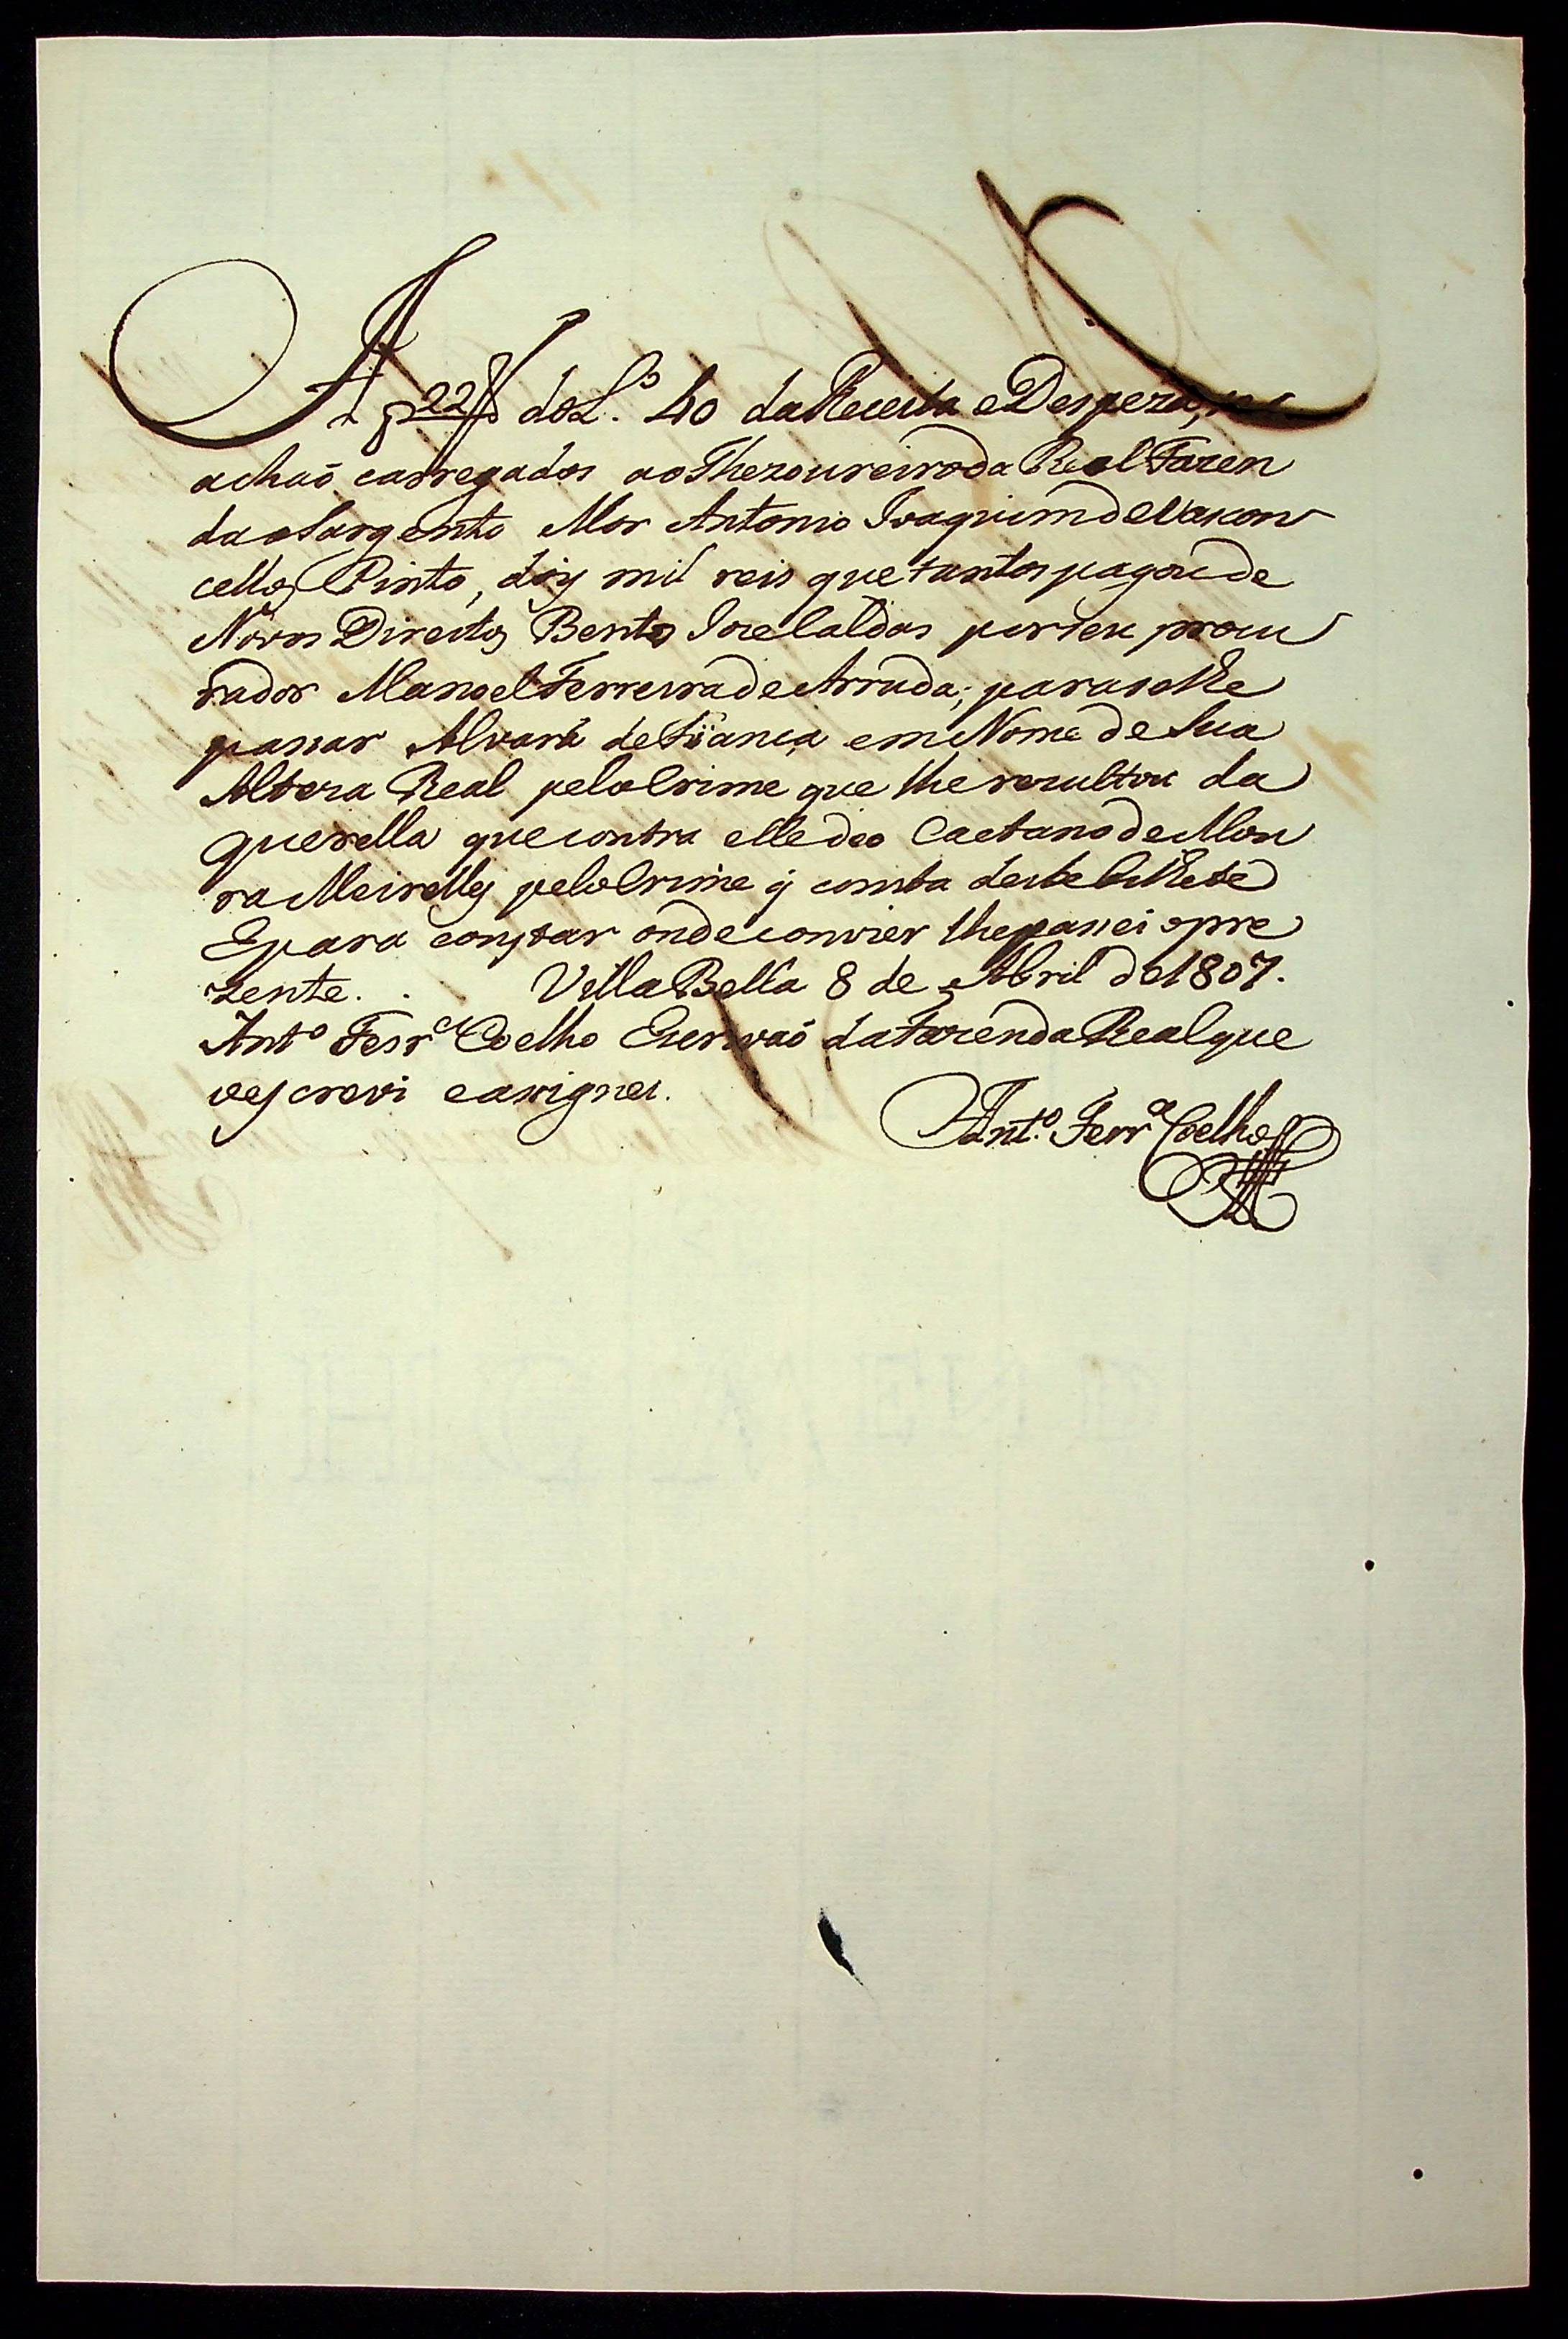 A f 22 do L.º 40 da Receita e Despeza, se
achaõ carregados ao Thezoureiro da Real Fazen
da o Sargento Mor Antonio Joaquim de Vascon
cellos Pinto, dois mil reis que tantos pagou de
Novos Direitos Bento Joze Caldas por seu procu
rador Manoel Ferreira de Arruda; para se lhe
passar Alvará de Fiança em Nome de Sua
Alteza Real pelo Crime que lhe rezultou da
querella que contra elle deo Caetano de Mou
ra Meirelles pelo Crime q̃ consta deste Bilhete
E para constar onde convier lhe passei o pre
zente. . . Villa Bella 8 de Abril de 1807.
Antº Ferrª Coelho Escrivaõ da Fazenda Real que
o escrevi e assignei.
Ant.º Ferrª Coelho